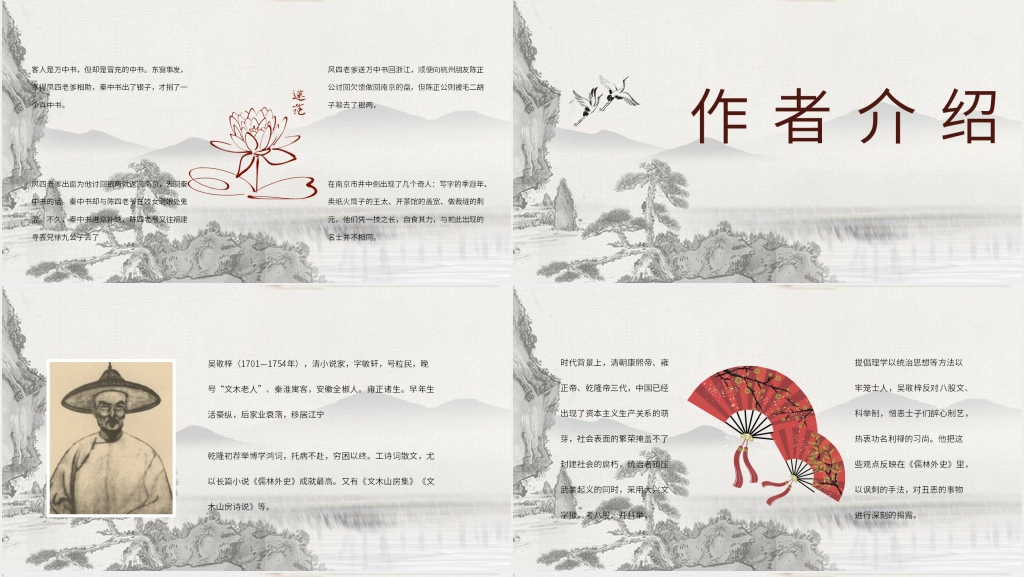 客人是万中书，但却是冒充的中书。东窗事发，
凤四老爹相助，秦中书出了银子，才捐了一
个真中书。
莲花
凤四老爹送万中书回浙江，顺便向杭州朋友陈正
公讨回欠债做回南京的盘，但陈正公则被毛二胡
子骗去了银两，
凤四老爹出面为他讨回银两就返回南京，去回秦
中书的话。秦中书却与陈四老爷在妓女聘娘处鬼
混。不久，秦中书进京补缺，陈四老爷又往福建
寻表兄徐九公子去了
在南京市井中倒出现了几个奇人：写字的季遐年、
卖纸火筒子的王太、开茶馆的盖宽、做裁缝的荆
元，他们凭一技之长，自食其力，与前此出现的
名士并不相同。
作者介绍
吴敬梓（1701—1754年），清小说家，字敏轩，号粒民，晚
号“文木老人”、秦淮寓客，安徽全椒人。雍正诸生。早年生
活豪纵，后家业衰落，移居江宁
乾隆初荐举博学鸿词，托病不赴，穷困以终。工诗词散文，尤
以长篇小说《儒林外史》成就最高。又有《文木山房集》《文
木山房诗说》等。
时代背景上，清朝康熙帝、雍
正帝、乾隆帝三代，中国已经
出现了资本主义生产关系的萌
芽，社会表面的繁荣掩盖不了
封建社会的腐朽，统治者镇压
武装起义的同时，采用大兴文
字狱，考八股、开科举，
提倡理学以统治思想等方法以
牢笼士人，吴敬梓反对八股文、
科举制，憎恶士子们醉心制艺，
热衷功名利禄的习尚。他把这
些观点反映在《儒林外史》里，
以讽刺的手法，对丑恶的事物
进行深刻的揭露。